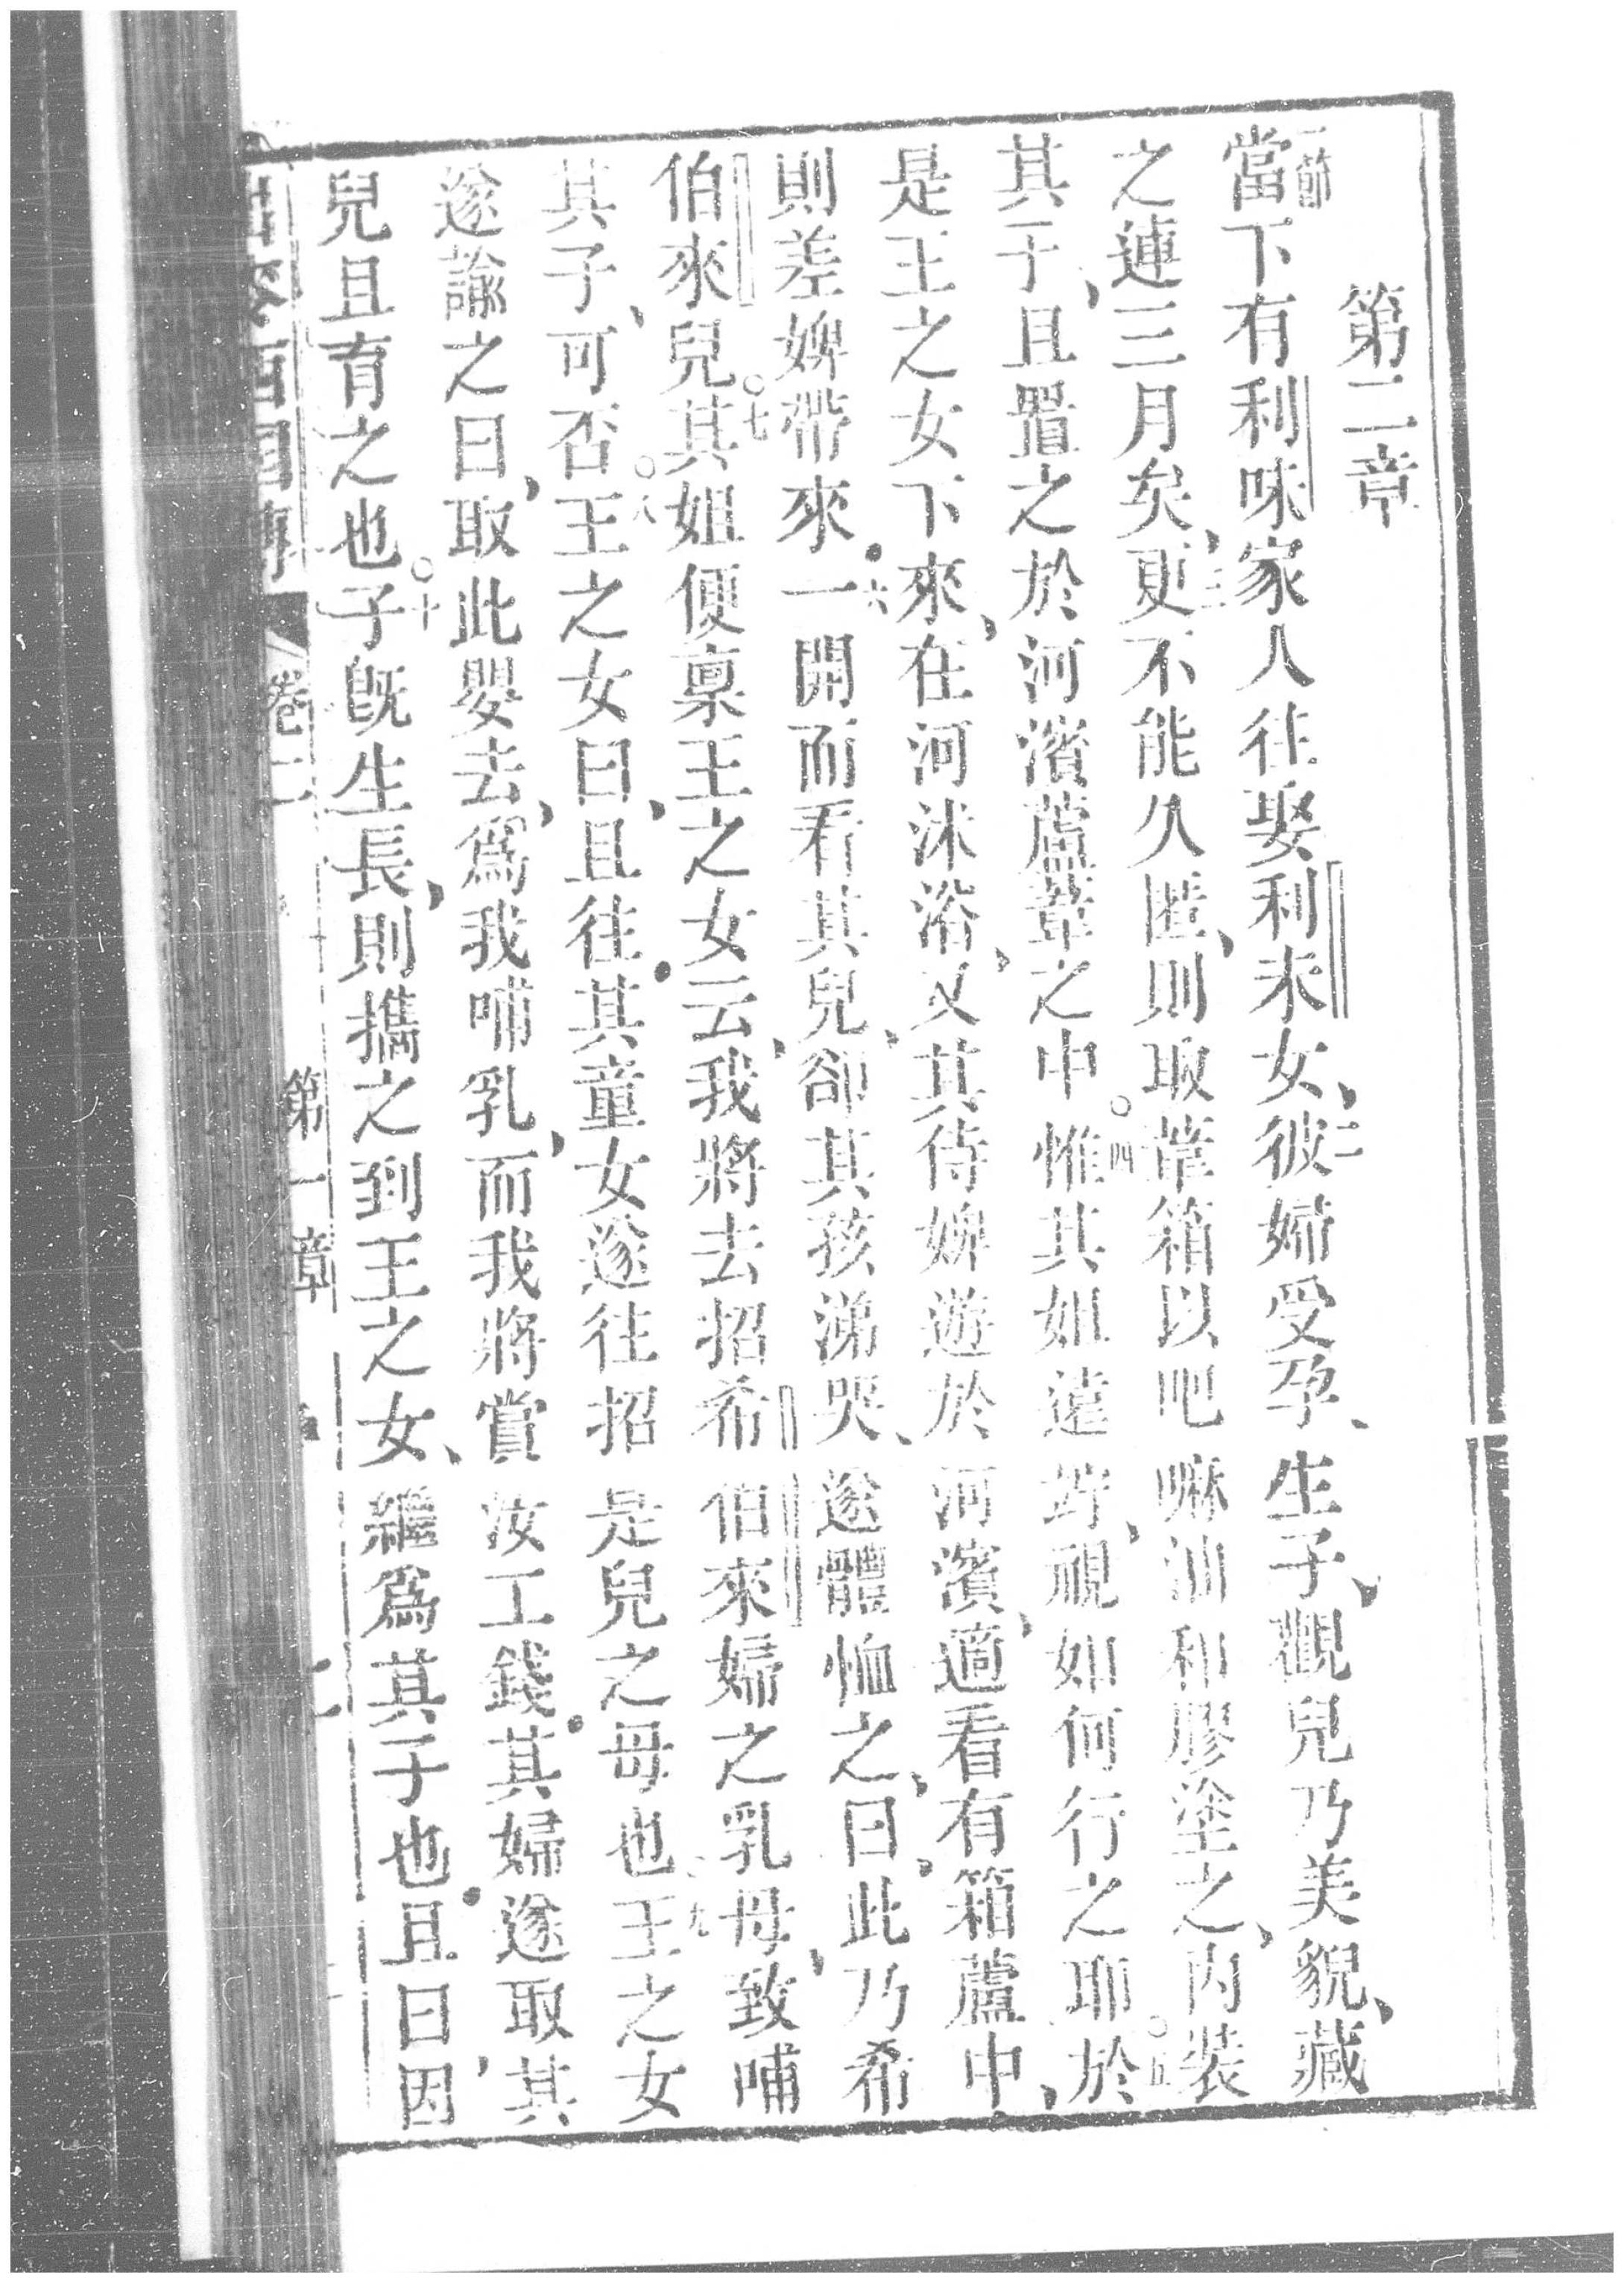 第二章
一節當下有利味家人往娶利未女、二彼婦受孕、生子、觀兒乃美貌、藏
之連三月矣、三更不能久匿、則取葦箱以吧嘛油和膠塗之、內裝
其子、且置之於河濱蘆葦之中○四惟其姐遠竚、視如何行之耶○五於
是王之女下來、在河沐浴、又其侍婢遊於河濱、適看有箱蘆中、
則差婢帶來•六一開而看其兒、卻其孩涕哭、遂體恤之、曰•此乃希
伯來兒○七其姐便稟王之女云、我將去招希伯來婦之乳母、致哺
其子、可否○八王之女曰、且往•其童女遂往招是兒之母也○九王之女
遂諭之曰、取此嬰去、爲我哺乳、而我將賞汝工錢•其婦遂取其
兒且育之也○十子既生長、則攜之到王之女、繼爲其子也•且曰、因
卷二 第一章 二